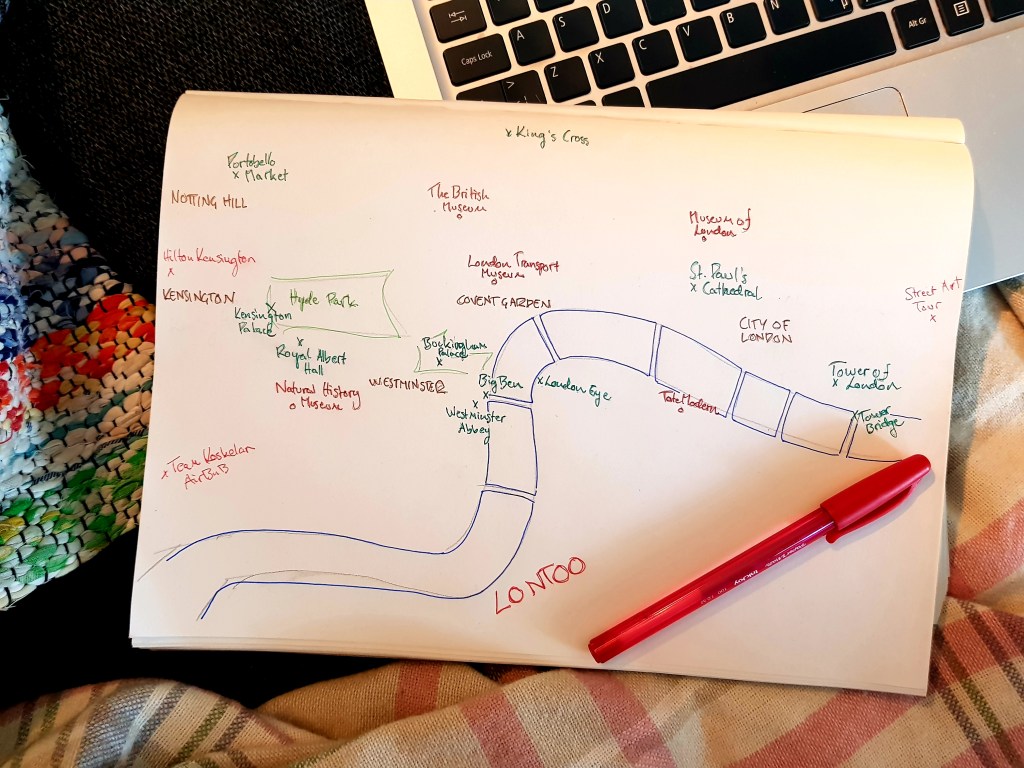 Caps Lock
A
S
D
Z
X
C
V
B
N
Alt Gr
× King's Cross
Portobello
× Market
NOTTING HILL
The British
Museum
Museum of
London
Hilton Kensington
London Transport
Museum
St. Paul's
× Cathedral
KENSINGTON
Hyde Park
COVENT GARDEN
Street Art
Tour
Kensington
Palace
CITY OF
LONDON
Royal Albert
Hall
Buckingham
Palace
Natural History
Museum
WESTMINSTER
Big Ben
× London Eye
Tower of
× London
Westminster
Abbey
Tate Modern
× Tower
Bridge
× Team Koskelan
AirBnB
LONTOO